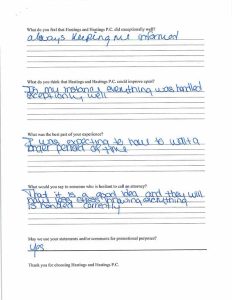 What do you feel that Hastings and Hastings P.C. did exceptionally well?
always keeping me informed
What do you think that Hastings and Hastings P.C. could improve upon?
In my instance everything was handled
well
What was the best part of your experience?
I was expecting to have to wait a
longer period of time
What would you say to someone who is hesitant to call an attorney?
That it is a good idea and they will
have less stress knowing everything
is handled correctly
May we use your statements and/or comments for promotional purposes?
yes
Thank you for choosing Hastings and Hastings P.C.